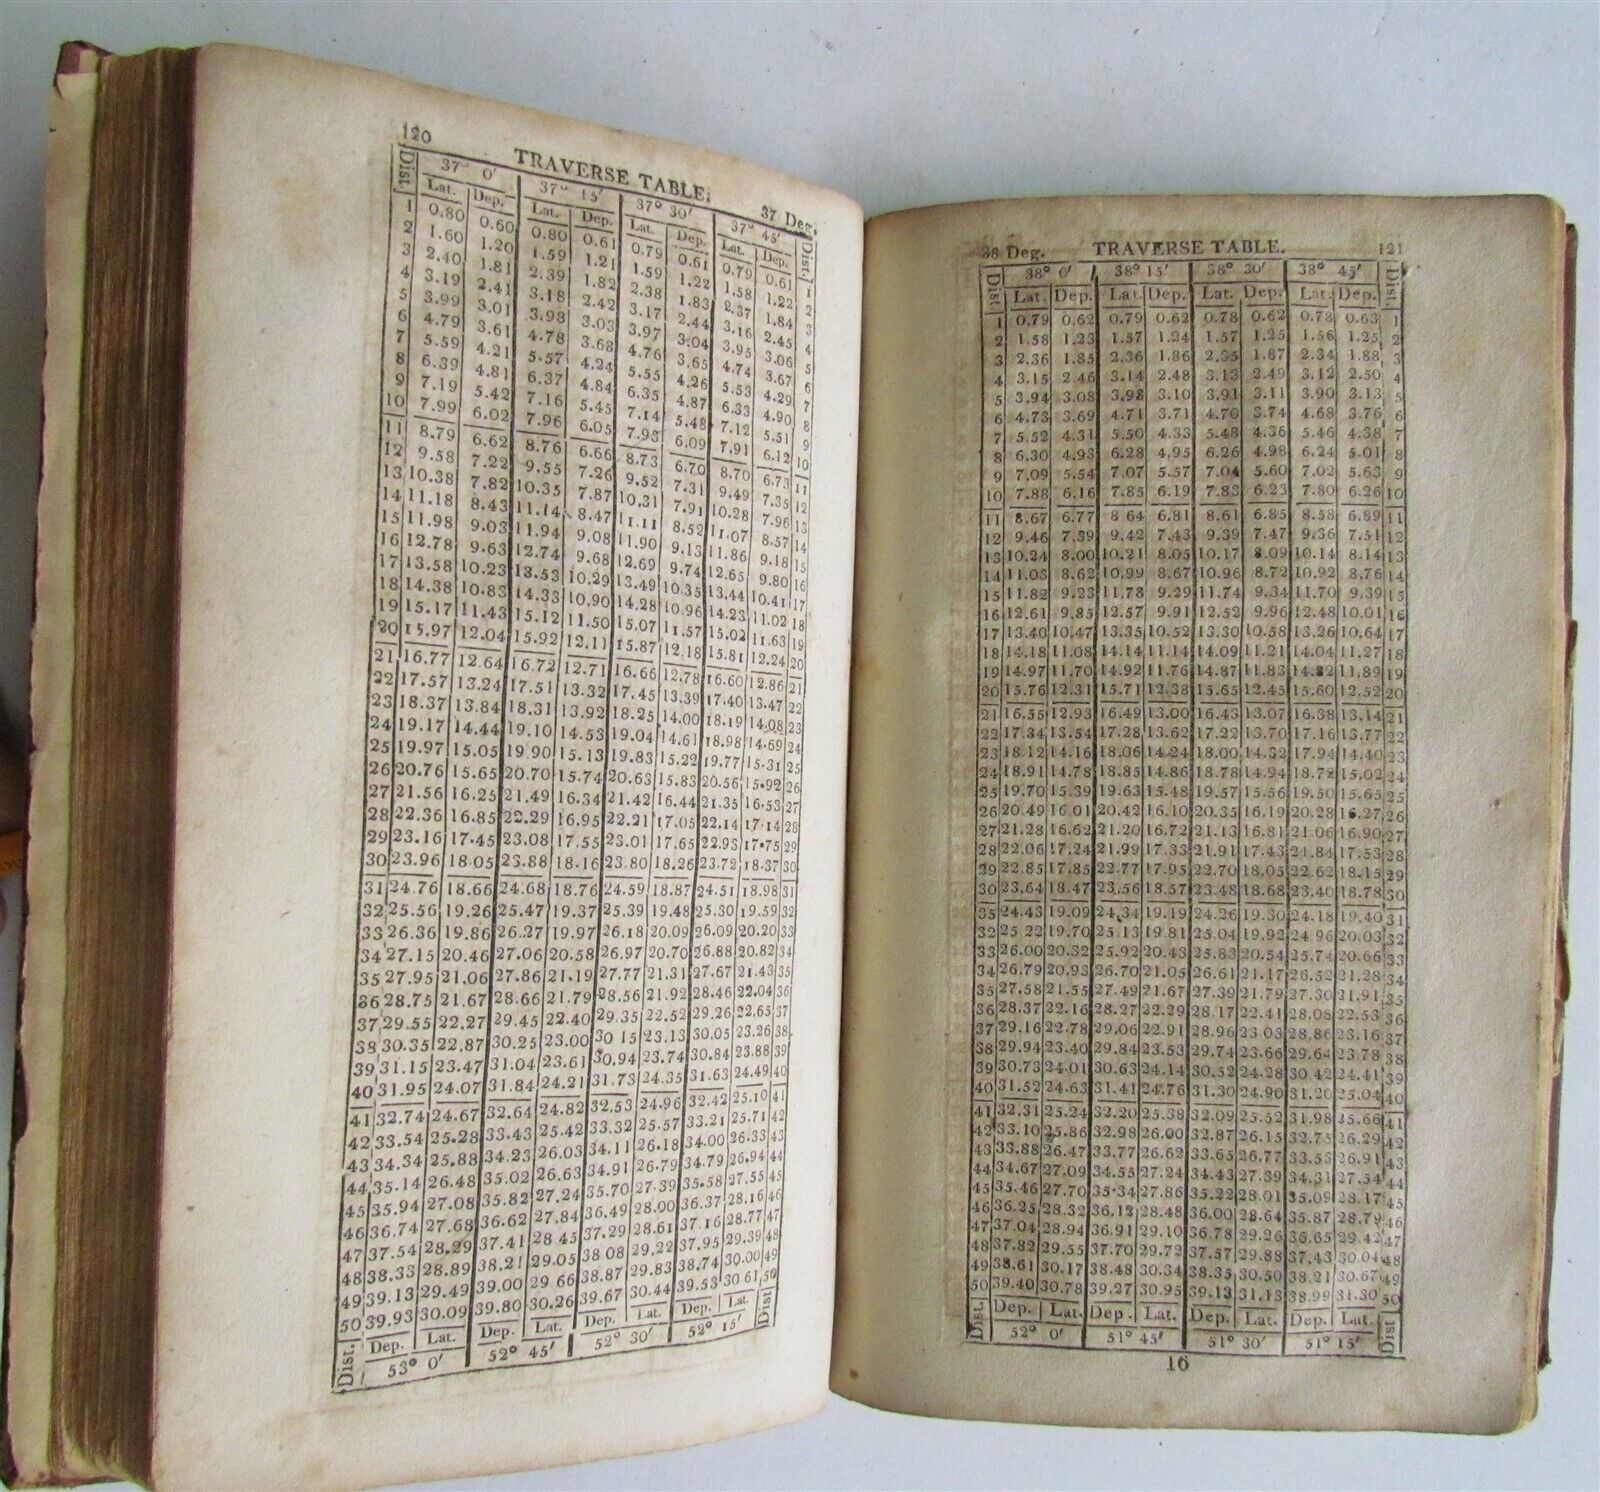 120
TRAVERSE TABLE.
37 Deg.
Dist. 37° 0′ 37° 15′ 37° 30′ 37° 45′ Dist.
Lat. Dep. Lat. Dep. Lat. Dep. Lat. Dep.
1 0.80 0.60 0.80 0.61 0.79 0.61 0.79 0.61 1
2 1.60 1.20 1.59 1.21 1.59 1.22 1.58 1.22 2
3 2.40 1.81 2.39 1.82 2.38 1.83 2.37 1.84 3
4 3.19 2.41 3.18 2.42 3.17 2.44 3.16 2.45 4
5 3.99 3.01 3.98 3.03 3.97 3.04 3.95 3.06 5
6 4.79 3.61 4.78 3.63 4.76 3.65 4.74 3.67 6
7 5.59 4.21 5.57 4.24 5.55 4.26 5.53 4.29 7
8 6.39 4.81 6.37 4.84 6.35 4.87 6.33 4.90 8
9 7.19 5.42 7.16 5.45 7.14 5.48 7.12 5.51 9
10 7.99 6.02 7.96 6.05 7.93 6.09 7.91 6.12 10
11 8.79 6.62 8.76 6.66 8.73 6.70 8.70 6.73 11
12 9.58 7.22 9.55 7.26 9.52 7.31 9.49 7.35 12
13 10.38 7.82 10.35 7.87 10.31 7.91 10.28 7.96 13
14 11.18 8.43 11.14 8.47 11.11 8.52 11.07 8.57 14
15 11.98 9.03 11.94 9.08 11.90 9.13 11.86 9.18 15
16 12.78 9.63 12.74 9.68 12.69 9.74 12.65 9.80 16
17 13.58 10.23 13.53 10.29 13.49 10.35 13.44 10.41 17
18 14.38 10.83 14.33 10.90 14.28 10.96 14.23 11.02 18
19 15.17 11.43 15.12 11.50 15.07 11.57 15.02 11.63 19
20 15.97 12.04 15.92 12.11 15.87 12.18 15.81 12.24 20
21 16.77 12.64 16.72 12.71 16.66 12.78 16.60 12.86 21
22 17.57 13.24 17.51 13.32 17.45 13.39 17.40 13.47 22
23 18.37 13.84 18.31 13.92 18.25 14.00 18.19 14.08 23
24 19.17 14.44 19.10 14.53 19.04 14.61 18.98 14.69 24
25 19.97 15.05 19.90 15.13 19.83 15.22 19.77 15.31 25
26 20.76 15.65 20.70 15.74 20.63 15.83 20.56 15.92 26
27 21.56 16.25 21.49 16.34 21.42 16.44 21.35 16.53 27
28 22.36 16.85 22.29 16.95 22.21 17.05 22.14 17.14 28
29 23.16 17.45 23.08 17.55 23.01 17.65 22.93 17.75 29
30 23.96 18.05 23.88 18.16 23.80 18.26 23.72 18.37 30
31 24.76 18.66 24.68 18.76 24.59 18.87 24.51 18.98 31
32 25.56 19.26 25.47 19.37 25.39 19.48 25.30 19.59 32
33 26.36 19.86 26.27 19.97 26.18 20.09 26.09 20.20 33
34 27.15 20.46 27.06 20.58 26.97 20.70 26.88 20.82 34
35 27.95 21.06 27.86 21.19 27.77 21.31 27.67 21.43 35
36 28.75 21.67 28.66 21.79 28.56 21.92 28.46 22.04 36
37 29.55 22.27 29.45 22.40 29.35 22.52 29.26 22.65 37
38 30.35 22.87 30.25 23.00 30 15 23.13 30.05 23.26 38
39 31.15 23.47 31.04 23.61 30.94 23.74 30.84 23.88 39
40 31.95 24.07 31.84 24.21 31.73 24.35 31.63 24.49 40
41 32.74 24.67 32.64 24.82 32.53 24.96 32.42 25.10 41
42 33.54 25.28 33.43 25.42 33.32 25.57 33.21 25.71 42
43 34.34 25.88 34.23 26.03 34.11 26.18 34.00 26.33 43
44 35.14 26.48 35.02 26.63 34.91 26.79 34.79 26.94 44
45 35.94 27.08 35.82 27.24 35.70 27.39 35.58 27.55 45
46 36.74 27.68 36.62 27.84 36.49 28.00 36.37 28.16 46
47 37.54 28.29 37.41 28.45 37.29 28.61 37.16 28.77 47
48 38.33 28.89 38.21 29.05 38 08 29.22 37.95 29.39 48
49 39.13 29.49 39.00 29 66 38.87 29.83 38.74 30.00 49
50 39.93 30.09 39.80 30.26 39.67 30.44 39.53 30.61 50
Dist. Dep. Lat. Dep. Lat. Dep. Lat. Dep. Lat. Dist
53° 0′ 52° 45′ 52° 30′ 52° 15′
38 Deg.
TRAVERSE TABLE.
121
Dist. 38° 0′ 38° 15′ 38° 30′ 38° 45′ Dist.
Lat. Dep. Lat. Dep. Lat. Dep. Lat. Dep.
1 0.79 0.62 0.79 0.62 0.78 0.62 0.78 0.63 1
2 1.58 1.23 1.57 1.24 1.57 1.25 1.56 1.25 2
3 2.36 1.85 2.36 1.86 2.35 1.87 2.34 1.88 3
4 3.15 2.46 3.14 2.48 3.13 2.49 3.12 2.50 4
5 3.94 3.08 3.93 3.10 3.91 3.11 3.90 3.13 5
6 4.73 3.69 4.71 3.71 4.70 3.74 4.68 3.76 6
7 5.52 4.31 5.50 4.33 5.48 4.36 5.46 4.38 7
8 6.30 4.93 6.28 4.95 6.26 4.98 6.24 5.01 8
9 7.09 5.54 7.07 5.57 7.04 5.60 7.02 5.63 9
10 7.88 6.16 7.85 6.19 7.83 6.23 7.80 6.26 10
11 8.67 6.77 8 64 6.81 8.61 6.85 8.58 6.89 11
12 9.46 7.39 9.42 7.43 9.39 7.47 9.36 7.51 12
13 10.24 8.00 10.21 8.05 10.17 8.09 10.14 8.14 13
14 11.03 8.62 10.99 8.67 10.96 8.72 10.92 8.76 14
15 11.82 9.23 11.78 9.29 11.74 9.34 11.70 9.39 15
16 12.61 9.85 12.57 9.91 12.52 9.96 12.48 10.01 16
17 13.40 10.47 13.35 10.52 13.30 10.58 13.26 10.64 17
18 14.18 11.08 14.14 11.14 14.09 11.21 14.04 11.27 18
19 14.97 11.70 14.92 11.76 14.87 11.83 14.82 11.89 19
20 15.76 12.31 15.71 12.38 15.65 12.45 15.60 12.52 20
21 16.55 12.93 16.49 13.00 16.43 13.07 16.38 13.14 21
22 17.34 13.54 17.28 13.62 17.22 13.70 17.16 13.77 22
23 18.12 14.16 18.06 14.24 18.00 14.32 17.94 14.40 23
24 18.91 14.78 18.85 14.86 18.78 14.94 18.72 15.02 24
25 19.70 15.39 19.63 15.48 19.57 15.56 19.50 15.65 25
26 20.49 16.01 20.42 16.10 20.35 16.19 20.28 16.27 26
27 21.28 16.62 21.20 16.72 21.13 16.81 21.06 16.90 27
28 22.06 17.24 21.99 17.33 21.91 17.43 21.84 17.53 28
39 22.85 17.85 22.77 17.95 22.70 18.05 22.62 18.15 29
30 23.64 18.47 23.56 18.57 23.48 18.68 23.40 18.78 30
35 24.43 19.09 24.34 19.19 24.26 19.30 24.18 19.40 31
32 25 22 19.70 25.13 19.81 25.04 19.92 24 96 20.03 32
33 26.00 20.32 25.92 20.43 25.83 20.54 25.74 20.66 33
34 26.79 20.93 26.70 21.05 26.61 21.17 26.52 21.28 34
35 27.58 21.55 27.49 21.67 27.39 21.79 27.30 21.91 35
36 28.37 22.16 28.27 22.29 28.17 22.41 28.08 22.53 36
37 29.16 22.78 29.06 22.91 28.96 23.03 28.86 23.16 37
38 29.94 23.40 29.84 23.53 29.74 23.66 29.64 23.78 38
39 30.73 24.01 30.63 24.14 30.52 24.28 30.42 24.41 39
40 31.52 24.63 31.41 24.76 31.30 24.90 31.20 25.04 40
41 32.31 25.24 32.20 25.38 32.09 25.52 31.98 35.66 41
42 33.10 25.86 32.98 26.00 32.87 26.15 32.75 26.29 42
43 33.88 26.47 33.77 26.62 33.65 26.77 33.53 26.91 43
44 34.67 27.09 34.55 27.24 34.43 27.39 34.31 27.54 44
45 35.46 27.70 35.34 27.86 35.22 28.01 35.09 28.17 45
46 36.25 28.32 36.12 28.48 36.00 28.64 35.87 28.79 46
47 37.04 28.94 36.91 29.10 36.78 29.26 36.65 29.42 47
48 37.82 29.55 37.70 29.72 37.57 29.88 37.43 30.04 48
49 38.61 30.17 38.48 30.34 38.35 30.50 38.21 30.67 49
50 39.40 30.78 39.27 30.95 39.13 31.13 38.99 31.30 50
Dist. Dep. Lat. Dep. Lat. Dep. Lat. Dep. Lat. Dist
52° 0′ 51° 45′ 51° 30′ 51° 15′
16